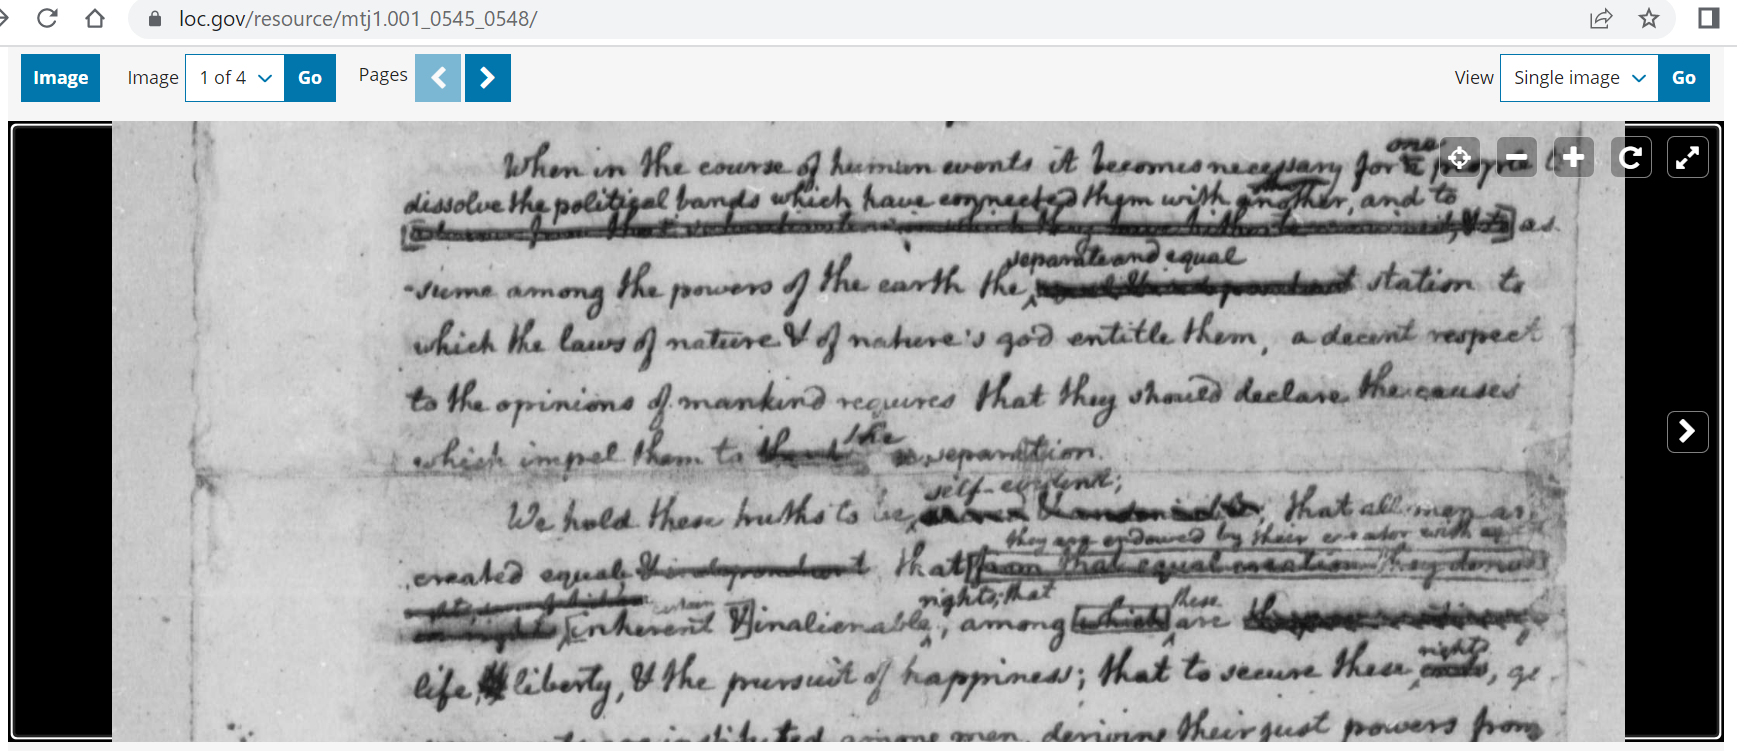 loc.gov/resource/mtj1.001_0545_0548/
Image Image 1 of 4 Go Pages View Single image Go
one
When in the course of human events it becomes necessary for a people
dissolve the political bands which have connected them with another, and to
as
separate and equal
-sume among the powers of the earth the station to
which the laws of nature & of nature's god entitle them, a decent respect
to the opinions of mankind requires that they should declare the causes
the
which impel them to separation.
self-evident;
We hold these truths to be that all men are
they are endowed by their creator with
created equal & independent that from that equal creation they derive
rights; that these
certain
inherent & inalienable, among which are
rights
life, liberty, & the pursuit of happiness; that to secure these ends, go
instituted among men, deriving their just powers from